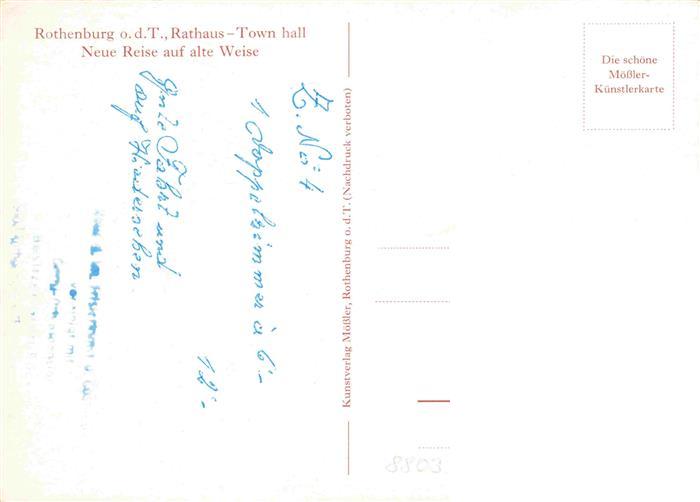 Rothenburg o. d. T., Rathaus – Town hall
Neue Reise auf alte Weise
Die schöne
Mößler-
Künstlerkarte
Kunstverlag Mößler, Rothenburg o. d. T. (Nachdruck verboten)
Z. No 4
1 Doppelzimmer à 6.-
12.-
Gute Fahrt und
auf Wiedersehen.
8803